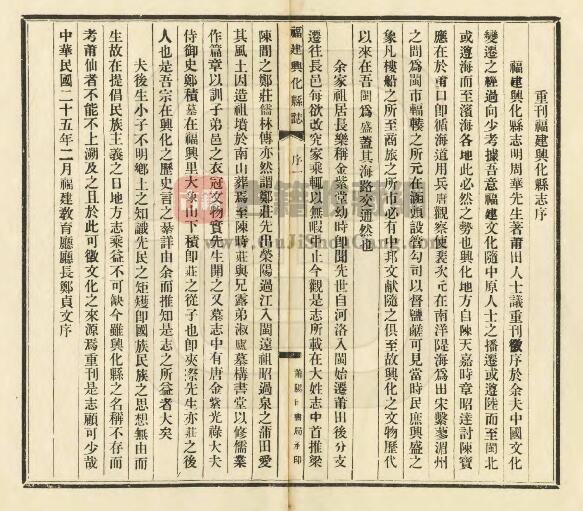 重刊福建興化縣志序
福建興化縣志明周華先生著莆田人士議重刊徵序於余夫中國文化
變遷之經過向少考據吾意福建文化隨中原人士之播遷或遵陸而至閩北
或遵海而至濱海各地此必然之勢也興化地方自陳天嘉時章昭達討陳寶
應在於莆口即循海道用兵唐觀察使裴次元在南洋隄海為田宋繫蓼湄州
之間為閩市輻輳之所元在涵頭設管勾司以督鹽鹺可見當時民庶興盛之
象凡樓船之所至商旅之所必有名邦文獻隨之俱至故興化之文物歷代
以來在吾閩為盛蓋其海路交通然也
余家祖居長樂稱金紫堂幼時即聞先世自河洛入閩始遷莆田後分支
遷往長邑每欲改究家乘輒以無暇中止今觀是志所載在大姓志中首推梁
福建興化縣誌
序一
莆陽日書局承印
陳間之鄭莊儒林傳亦然謂鄭莊先出滎陽過江入閩遠祖昭過泉之蒲田愛
其風土因造祖墳於南山葬焉至陳時莊與兄露弟淑廬墓構書堂以修儒業
作篇章以訓子弟邑之衣冠文物實先生開之又墓志中有唐金紫光祿大夫
侍御史鄭積墓在福興里大象山下積即莊之從子也即夾漈先生亦莊之後
人也是吾宗在興化之歷史言之綦詳由余而推知是志之所益者大矣
夫後生小子不明鄉土之知識先民之矩矱即國族民族之思想無由而
生故在提倡民族主義之日地方志乘益不可缺今雖興化縣之名稱不存而
考莆仙者不能不上溯及之且於此可徵文化之來源焉重刊是志顧可少哉
中華民國二十五年二月福建教育廳廳長鄭貞文序